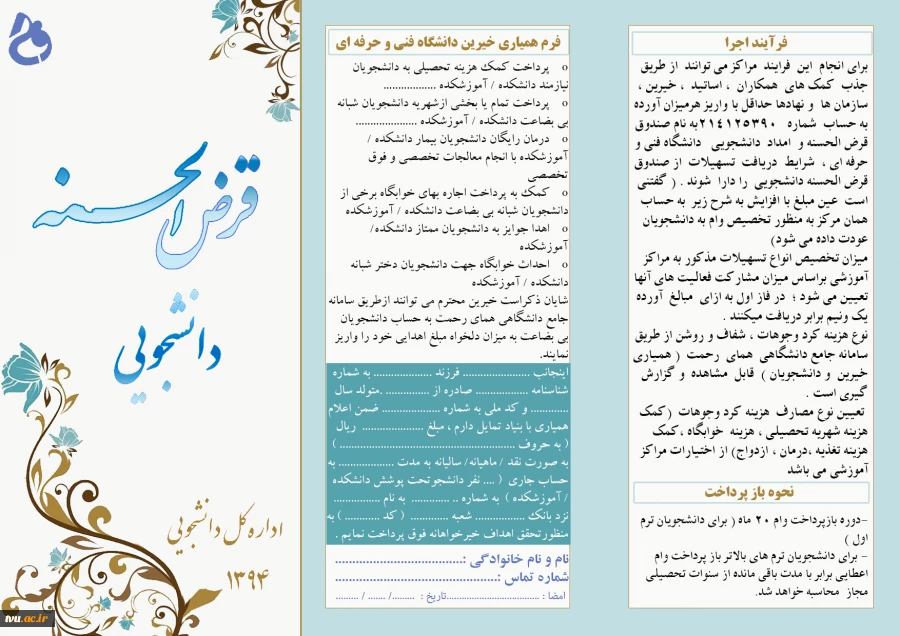 فرآیند اجرا
برای انجام این فرایند مراکز می توانند از طریق
جذب کمک های همکاران ، اساتید ، خیرین ،
سازمان ها و نهادها حداقل با واریز هرمیزان آورده
به حساب شماره ۲۱۴۱۲۵۳۹۰ به نام صندوق
قرض الحسنه و امداد دانشجویی دانشگاه فنی و
حرفه ای ، شرایط دریافت تسهیلات از صندوق
قرض الحسنه دانشجویی را دارا شوند . ( گفتنی
است عین مبلغ با افزایش به شرح زیر به حساب
همان مرکز به منظور تخصیص وام به دانشجویان
عودت داده می شود)
میزان تخصیص انواع تسهیلات مذکور به مراکز
آموزشی براساس میزان مشارکت فعالیت های آنها
تعیین می شود ؛ در فاز اول به ازای مبالغ آورده
یک ونیم برابر دریافت میکنند .
نوع هزینه کرد وجوهات ، شفاف و روشن از طریق
سامانه جامع دانشگاهی همای رحمت ( همیاری
خیرین و دانشجویان ) قابل مشاهده و گزارش
گیری است .
تعیین نوع مصارف هزینه کرد وجوهات (کمک
هزینه شهریه تحصیلی ، هزینه خوابگاه ،کمک
هزینه تغذیه ،درمان ، ازدواج) از اختیارات مراکز
آموزشی می باشد
نحوه باز پرداخت
-دوره بازپرداخت وام ۲۰ ماه ( برای دانشجویان ترم
اول )
- برای دانشجویان ترم های بالاتر باز پرداخت وام
اعطایی برابر با مدت باقی مانده از سنوات تحصیلی
مجاز محاسبه خواهد شد.
فرم همیاری خیرین دانشگاه فنی و حرفه ای
o پرداخت کمک هزینه تحصیلی به دانشجویان
نیازمند دانشکده / آموزشکده ..................
o پرداخت تمام یا بخشی ازشهریه دانشجویان شبانه
بی بضاعت دانشکده / آموزشکده .....................
o درمان رایگان دانشجویان بیمار دانشکده /
آموزشکده با انجام معالجات تخصصی و فوق
تخصصی
o کمک به پرداخت اجاره بهای خوابگاه برخی از
دانشجویان شبانه بی بضاعت دانشکده / آموزشکده
o اهدا جوایز به دانشجویان ممتاز دانشکده/
آموزشکده
o احداث خوابگاه جهت دانشجویان دختر شبانه
دانشکده / آموزشکده
شایان ذکراست خیرین محترم می توانند ازطریق سامانه
جامع دانشگاهی همای رحمت به حساب دانشجویان
بی بضاعت به میزان دلخواه مبلغ اهدایی خود را واریز
نمایند.
اینجانب .................... فرزند ................. به شماره
شناسنامه ................ صادره از ............. .متولد سال
............ و کد ملی به شماره .................. ضمن اعلام
همیاری با بنیاد تمایل دارم ، مبلغ ................... ریال
( به حروف .....................................................)
به صورت نقد / ماهیانه/ سالیانه به مدت ................. به
حساب جاری ( .... نفر دانشجوتحت پوشش دانشکده
/ آموزشکده ) به شماره .. ............ به نام ................
نزد بانک ............... شعبه ............ ( کد ........... ) به
منظورتحقق اهداف خیرخواهانه فوق پرداخت نمایم .
نام و نام خانوادگی :................................
شماره تماس :........................................
امضا : ..................................تاریخ : ........./ ...... / .........
قرض الحسنه
دانشجویی
اداره کل دانشجویی
۱۳۹۴
tvu.ac.ir